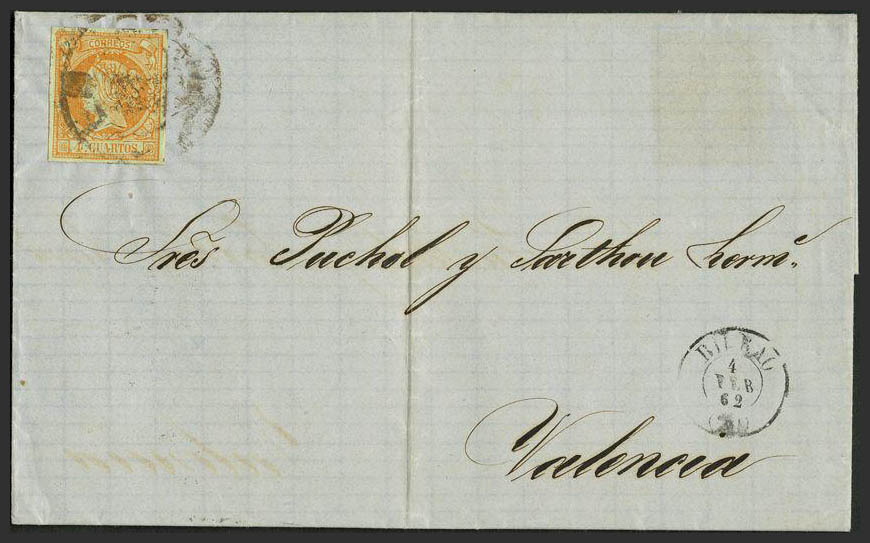 CORREOS
4 CUARTOS
Sres Puchol y Sarthou herms.
BILBAO
4
FEB
62
Valencia